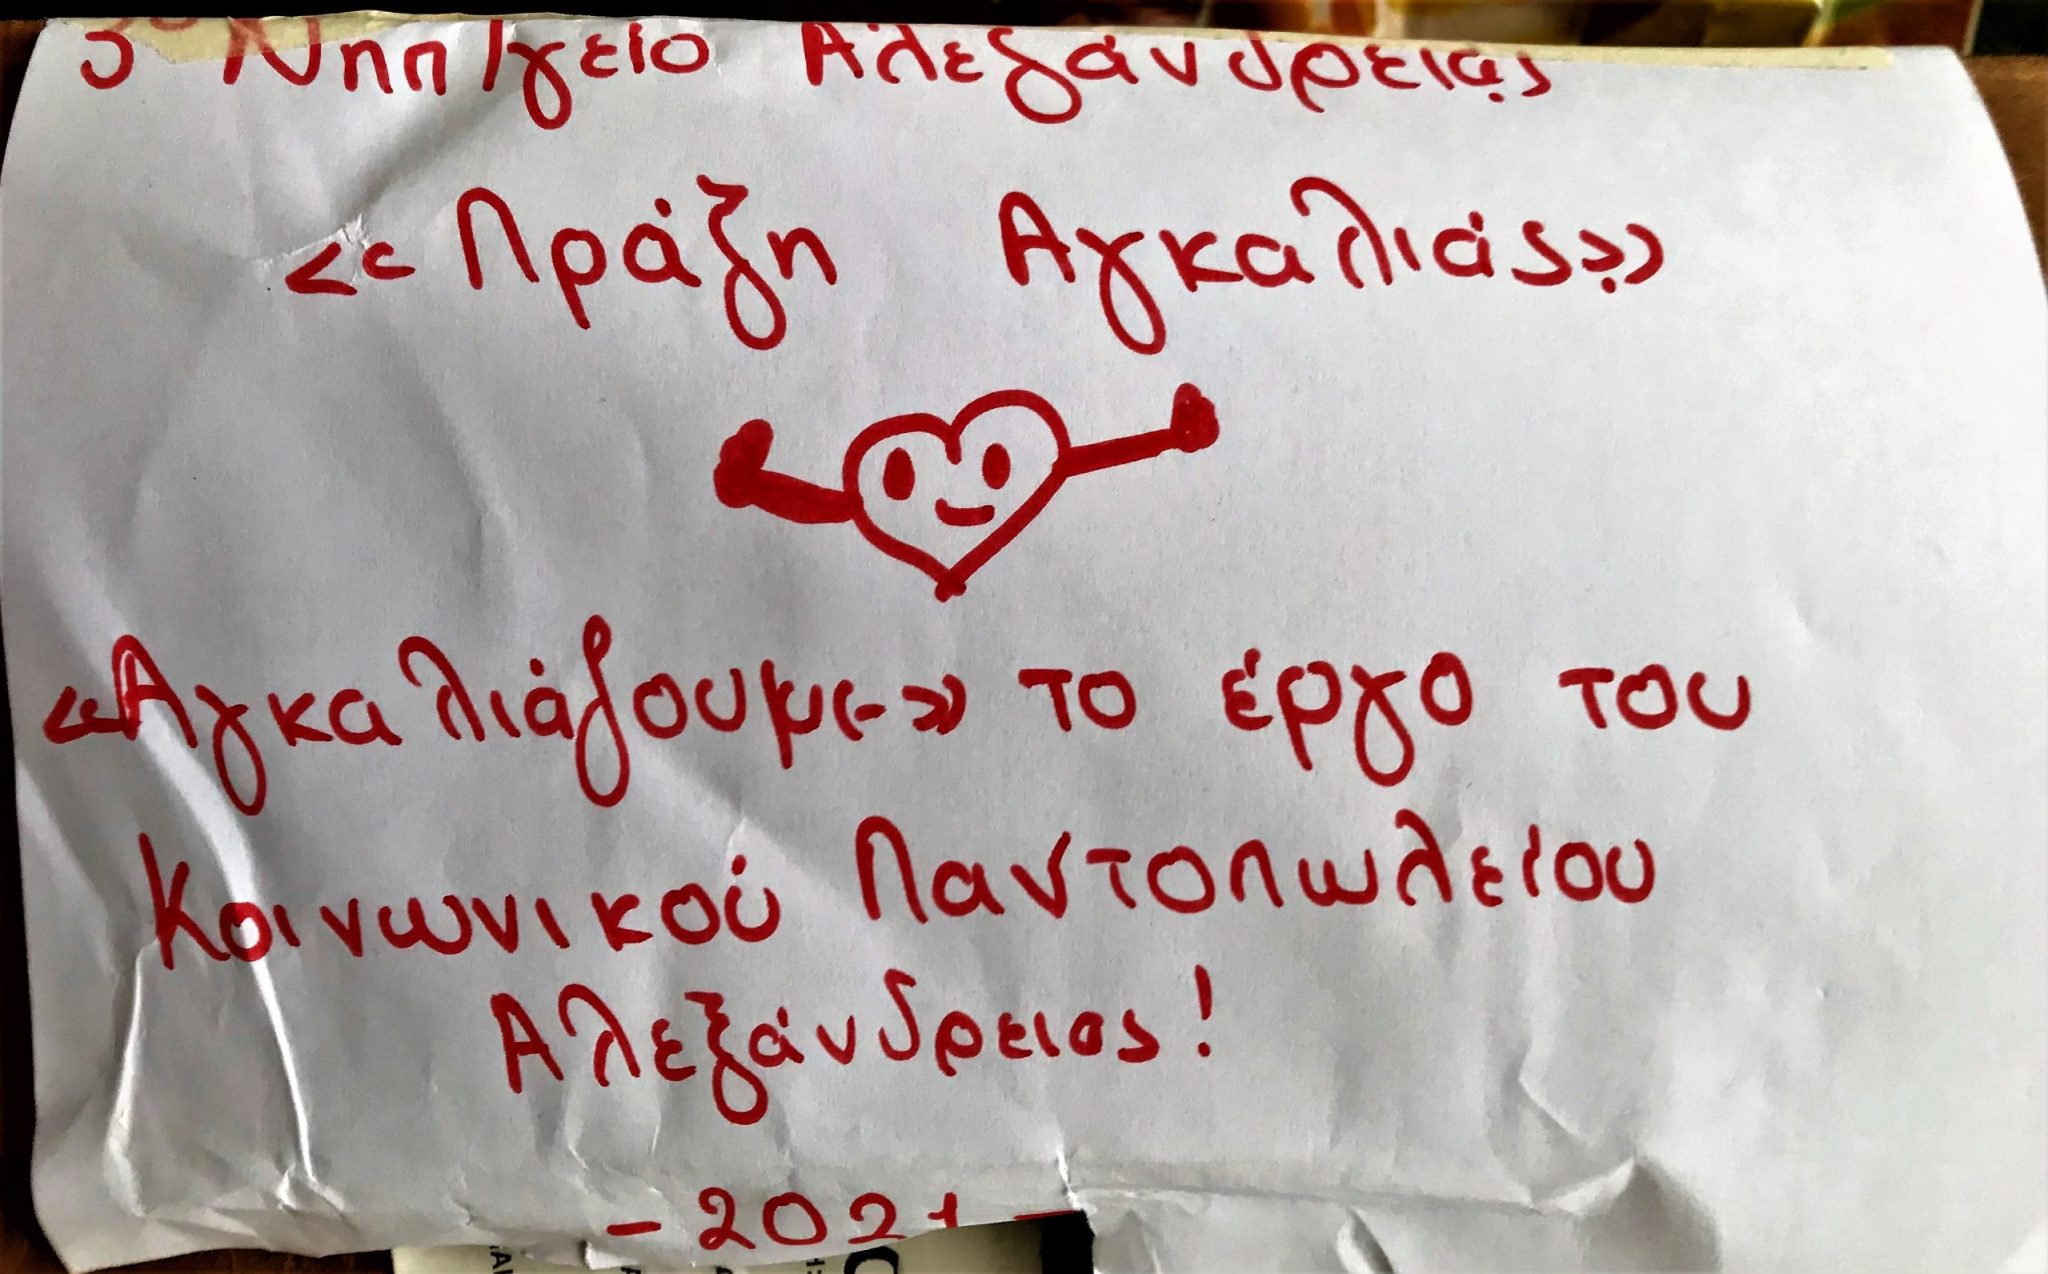 Νηπ/γείο Αλεξάνδρειας
«Πράξη Αγκαλιάς»
«Αγκαλιάζουμε» το έργο του
Κοινωνικού Παντοπωλείου
Αλεξάνδρειας!
- 2021 -